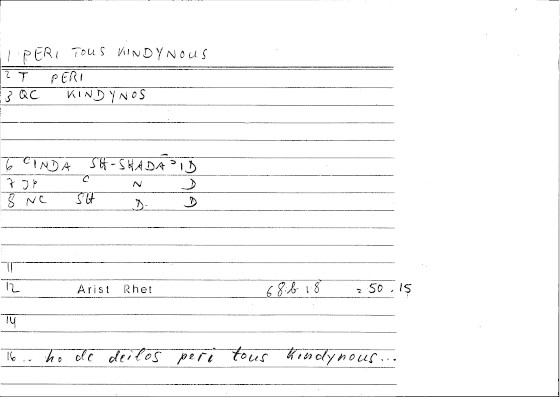 1 PERI TOUS KINDYNOUS
2 T PERI
3 QC KINDYNOS
6 ʿINDA SH-SHADĀʾID
7 JP ʿ N D
8 NC SH D D
11
12 Arist Rhet 68 b 18 = 50.15
14
16 .. ho de deilos peri tous kindynous...